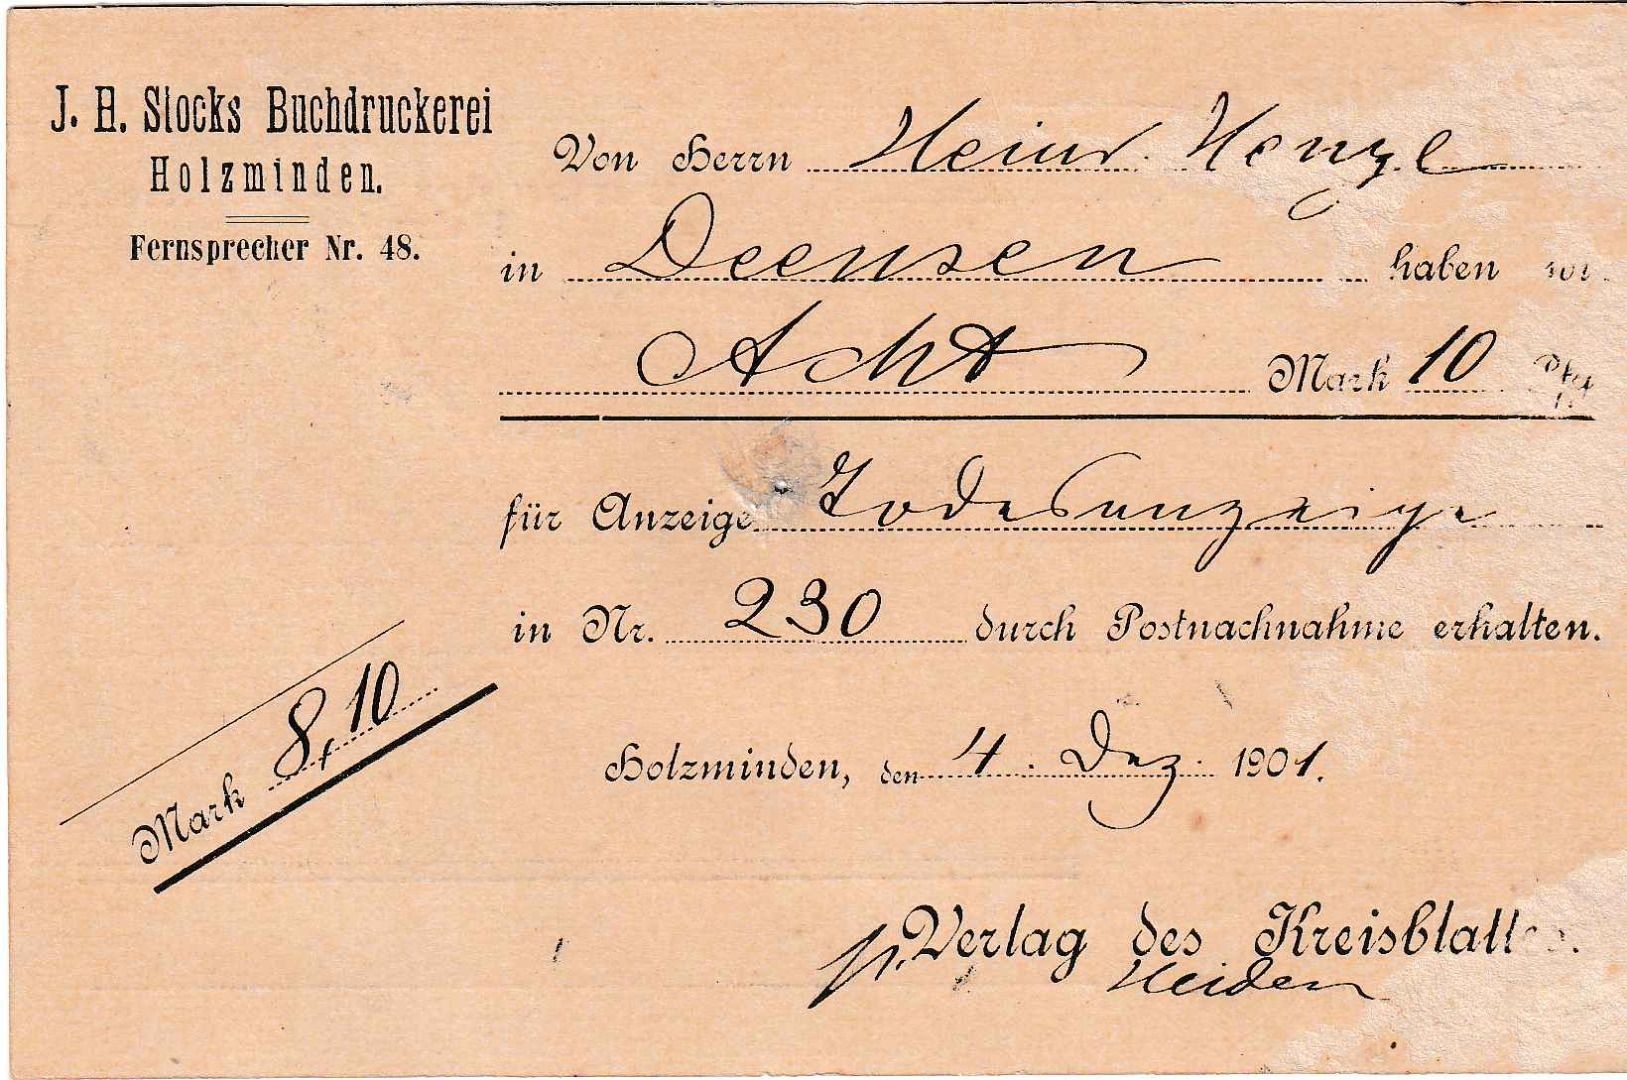 J. H. Stocks Buchdruckerei
Holzminden.
Fernsprecher Nr. 48.
Von Herrn Heinr. Henze
in Deensen haben wir
Acht Mark 10 Pfg
für Anzeige Todesanzeige
in Nr. 230 durch Postnachnahme erhalten.
Mark 8,10
Holzminden, den 4. Dez. 1901.
p. Verlag des Kreisblattes.